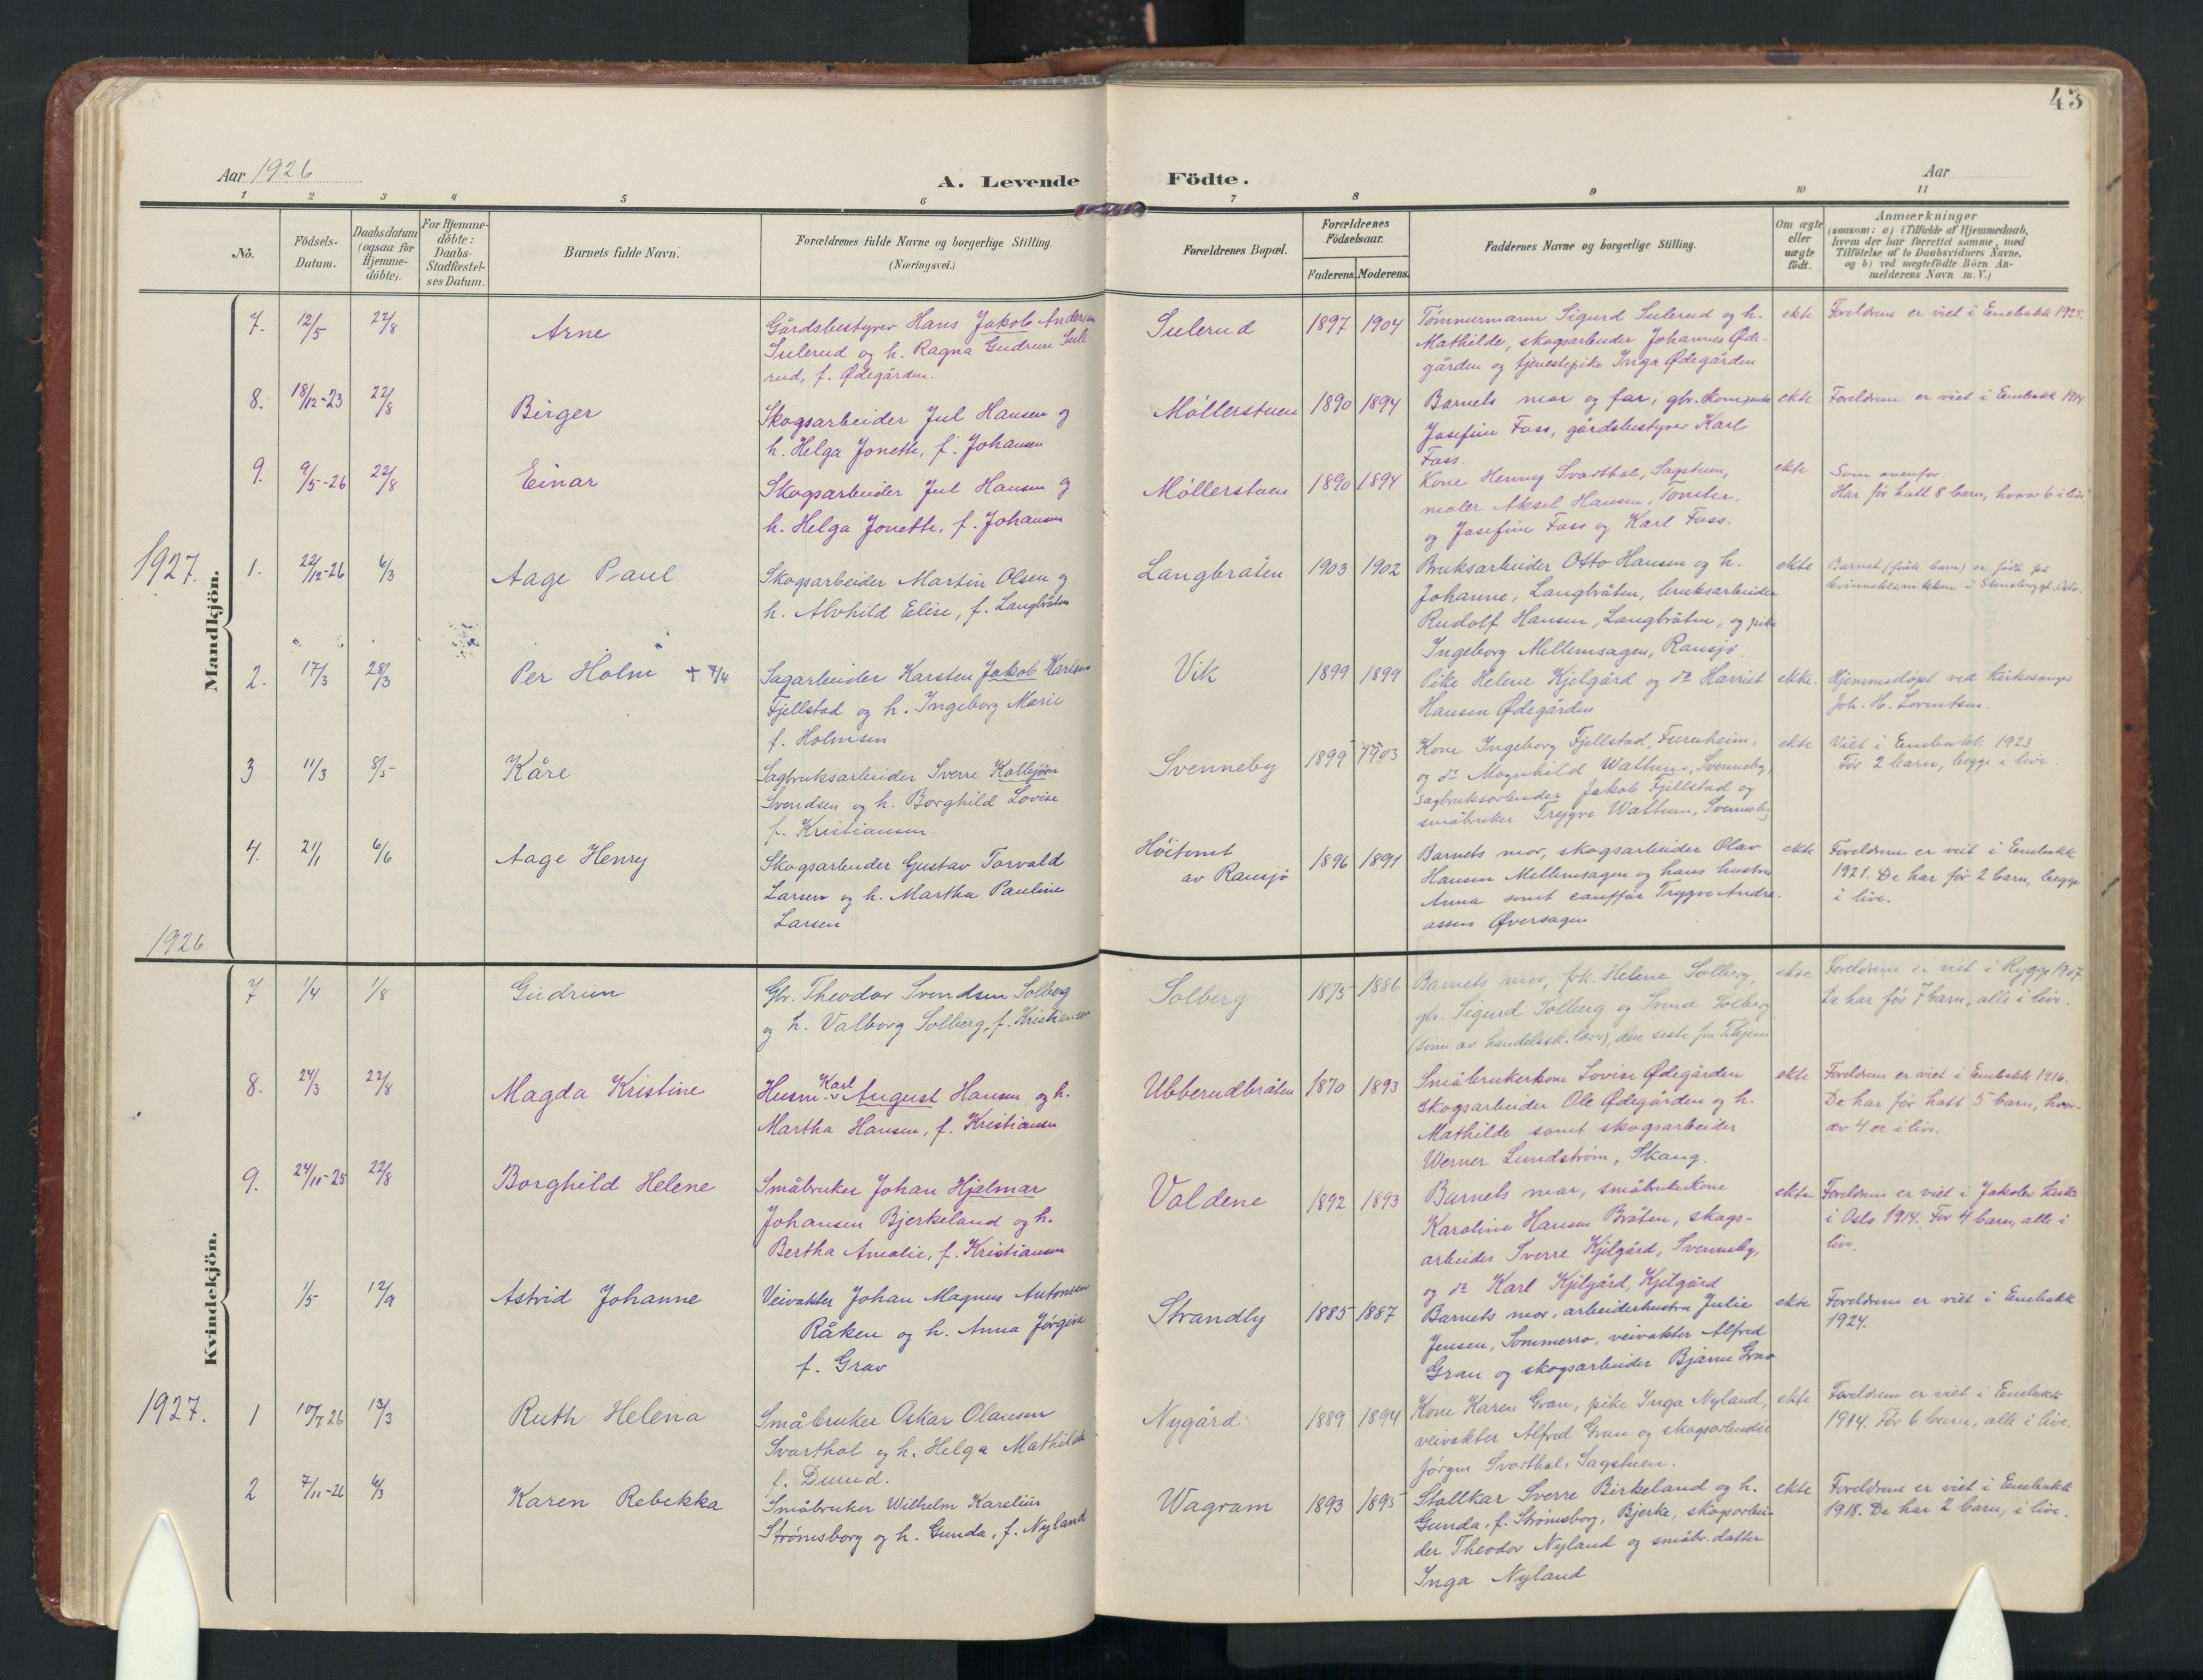 43
Aar 1926
A. Levende Födte.
Aar
1 2 3 4 5 6 7 8 9 10 11
No.
Födsels-Datum.
Daabsdatum (ogsaa for Hjemmedöbte).
For Hjemmedöbte: Daabs-Stadfæstelses Datum.
Barnets fulde Navn.
Forældrenes fulde Navne og borgerlige Stilling.
(Næringsvei.)
Forældrenes Bopæl.
Forældrenes Födselsaar.
Faderens. Moderens.
Faddernes Navne og borgerlige Stilling.
Om ægte eller uægte födt.
Anmærkninger
(saasom: a) i Tilfælde af Hjemmedaab,
hvem der har forrettet samme, med
Tilföielse af to Daabsvidners Navne,
og b) ved uægtefödte Börn An-
melderens Navn m. V.)
Mandkjön.
7. 12/5 22/8 Arne
Gårdsbestyrer Hans Jakob Andersen
Sulerud og h. Ragna Gudrun Sule-
rud, f. Ødegården.
Sulerud 1897 1904
Tömmermann Sigurd Sulerud og h.
Mathilde, skogsarbeider Johannes Øde-
gården og tjenestepike Inga Ødegården
ekte
Foreldrene er viet i Enebakk 1925.
8. 18/12-23 22/8 Birger
Skogsarbeider Jul Hansen og
h. Helga Jonette, f. Johansen
Möllerstuen 1890 1894
Barnets mor og far, gbr.
Josefine Foss, gårdsbestyrer Karl
Foss.
ekte
Foreldrene er viet i Enebakk 1914
9. 9/5-26 22/8 Einar
Skogsarbeider Jul Hansen og
h. Helga Jonette, f. Johansen
Möllerstuen 1890 1894
Kone Henny Svarthol, Sagstuen,
maler Aksel Hansen, Tomter,
og Josefine Foss og Karl Foss.
ekte
Som ovenfor.
Har før hatt 8 barn, hvorav 6 i live.
1927.
1. 22/12-26 6/3 Aage Paul
Skogsarbeider Martin Olsen og
h. Alvhild Elise, f. Langbråten
Langbråten 1903 1902
Bruksarbeider Otto Hansen og h.
Johanne, Langbråten, bruksarbeider
Rudolf Hansen, Langbråten, og pike
Ingeborg Mellemsagen, Ransjö.
ekte
Barnet (første barn) er född på
kvinneklinikken i Stensberggt. Oslo.
2. 17/3 28/3 Per Holm + 7/4
Sagarbeider Karsten Jakob Karlsen
Fjellstad og h. Ingeborg Marie
f. Holmsen
Vik 1899 1899
Pike Helene Kjelgård og do Harriet
Hansen Ødegården
ekte.
Hjemmedöpt ved kirkesanger
Joh. H. Lorentsen.
3 11/3 8/5 Kåre
Sagbruksarbeider Sverre Kolbjørn
Svendsen og h. Borghild Lovise
f. Kristiansen.
Svenneby 1899 1903
Kone Ingeborg Fjellstad, Furuheim,
og do Magnhild Wattum, Svenneby,
sagbruksarbeider Jakob Fjellstad og
småbruker Trygve Wattum, Svenneby
ekte
Viet i Enebakk 1923
Før 2 barn, begge i live.
4. 21/1 6/6 Aage Henry
Skogsarbeider Gustav Torvald
Larsen og h. Martha Pauline
Larsen
Höitomt
av Ransjö 1896 1891
Barnets mor, skogsarbeider Olav
Hansen Mellemsagen og hans hustru
Anna samt chauffør Trygve Andre-
assen Øversagen
ekte
Foreldrene er viet i Enebakk
1921. De har før 2 barn, begge
i live.
1926
Kvindekjön.
7 1/4 1/8 Gudrun
Gbr. Theodor Svendsen Solberg
og h. Valborg Solberg, f. Kristiansen
Solberg 1875 1886
Barnets mor, frk. Helene Solberg,
gbr. Sigurd Solberg og Svend Solberg
ekte
Foreldrene er viet i Rygge 1907.
De har før 7 barn, alle i live.
8. 24/3 22/8 Magda Kristine
Husm. Karl August Hansen og h.
Martha Hansen, f. Kristiansen
Ubberudbråten 1870 1893
Småbrukerkone Lovise Ødegården
skogsarbeider Ole Ødegården og h.
Mathilde samt skogsarbeider
Werner Lundström, Skaug.
ekte
Foreldrene er viet i Enebakk 1916.
De har før hatt 5 barn, hvor-
av 4 er i live.
9. 24/11-25 22/8 Borghild Helene
Småbruker Johan Hjalmar
Johansen Bjerkeland og h.
Bertha Amalie, f. Kristiansen
Valdene 1892 1893
Barnets mor, småbrukerkone
Karoline Hansen Bråten, skogs-
arbeider Sverre Kjelgård, Svenneby,
og do Karl Kjelgård, Kjelgård
ekte
Foreldrene er viet i Jakobs kirke
i Oslo 1914. Før 4 barn, alle i
live.
1/5 12/9 Astrid Johanne
Veivokter Johan Magnus Antonsen
Råken og h. Anna Jørgine
f. Grav
Strandly 1885 1887
Barnets mor, arbeiderhustru Julie
Jensen, Sommerro, veivokter Alfred
Grav og skogsarbeider Bjarne Grav
ekte
Foreldrene er viet i Enebakk
1924.
1927.
1 10/7 26 13/3 Ruth Helena
Småbruker Oskar Olausen
Svarthol og h. Helga Mathilde
f. Durud.
Nygård 1889 1894
Kone Karen Grav, pike Inga Nyland,
veivokter Alfred Grav og skogsarbeider
Jørgen Svarthol, Sagstuen.
ekte
Foreldrene er viet i Enebakk
1914. Før 6 barn, alle i live.
2 7/11-26 6/3 Karen Rebekka
Småbruker Wilhelm Karelius
Strömsborg og h. Gunda, f. Nyland
Wagram 1893 1895
Stallkar Sverre Birkeland og h.
Gunda, f. Strömsborg, Bjerke, skogsarbei-
der Theodor Nyland og småbr. datter
Inga Nyland
ekte
Foreldrene er viet i Enebakk
1918. De har 2 barn, i live.